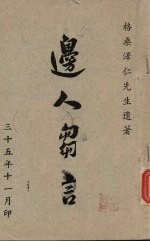 格桑澤仁先生遺著
邊人芻言
三十五年十一月印